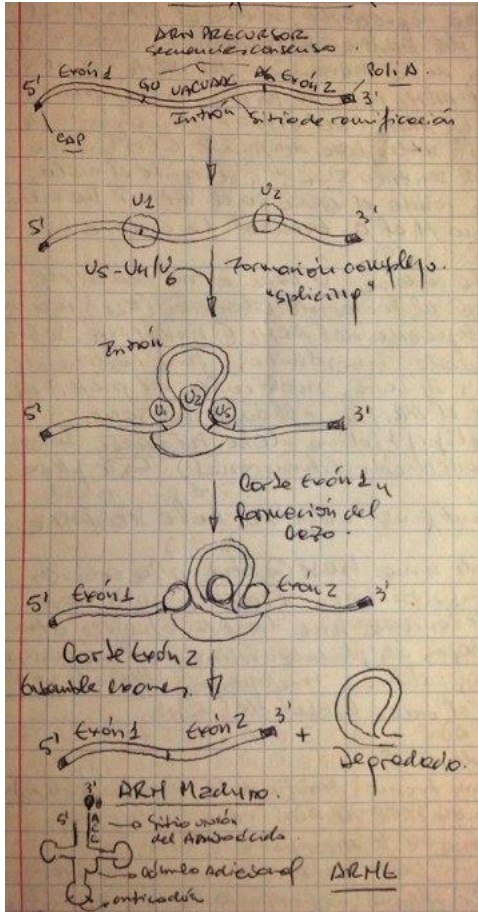 ARN PRECURSOR
secuencias consenso.
5' Exón 1 GU UACUAAC AG Exón 2 Poli A. 3'
CAP Intrón Sitio de ramificación
U1 U2
5' 3'
U5-U4/U6 Formación complejo.
"splicing"
Intrón
U1 U2 U5
5' 3'
Corte Exón 1 y
formación del
lazo.
5' Exón 1 Exón 2 3'
Corte Exón 2
Ensamble exones
5' Exón 1 Exón 2 3' +
Degradado.
ARN Maduro.
3'
5' A C C Sitio unión
del Aminoácido.
adicional ARNt
anticodón